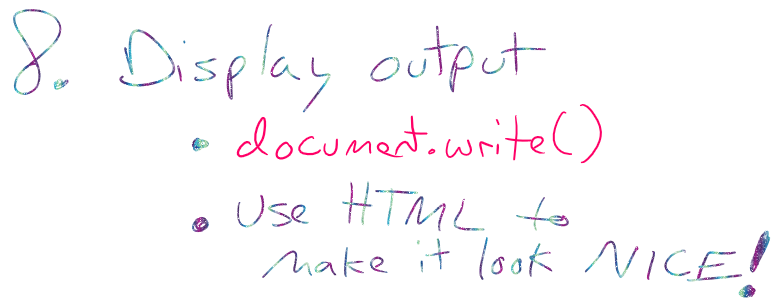 8. Display output
• document.write()
• Use HTML to
make it look NICE!